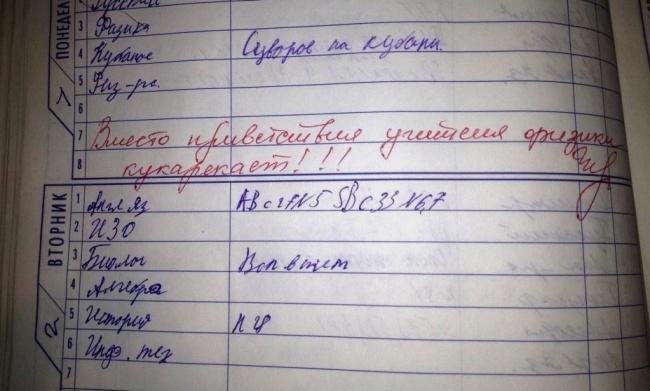 ПОНЕДЕЛ
3 Физика
4 Кубанов Суворов на кубани.
5 Физ-ра.
6
7 Вместо приветствия учителя физики
8 кукарекает!!!
7
ВТОРНИК
1 Англ яз АВ с 27 N5 SB с 33 N6,7
2 ИЗО
3 Биолог Воп в тет
4 Алгебра
5 История п 28
6 Инф. тех
7
2